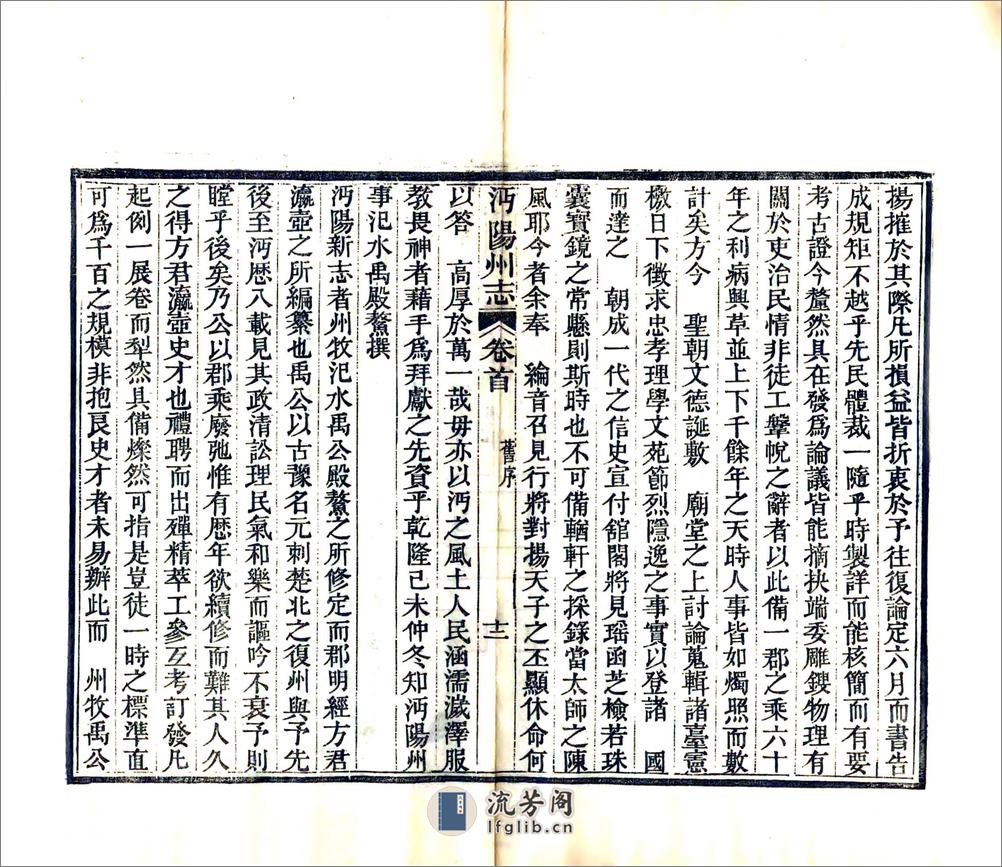 揚搉於其際凡所損益皆折衷於予往復論定六月而書告
成規矩不越乎先民體裁一隨乎時製詳而能核簡而有要
考古證今釐然具在發爲論議皆能摘抉端委雕鎪物理有
關於吏治民情非徒工鞶帨之辭者以此備一郡之乘六十
年之利病興革並上下千餘年之天時人事皆如燭照而數
計矣方今 聖朝文德誕敷 廟堂之上討論蒐輯諸臺憲
檄日下徵求忠孝理學文苑節烈隱逸之事實以登諸 國
而達之 朝成一代之信史宣付舘閣將見瑶函芝檢若珠
囊寶鏡之常懸則斯時也不可備輶軒之採錄當太師之陳
風耶今者余奉 綸音召見行將對揚天子之丕顯休命何
沔陽州志 卷首 舊序 十二
以答 高厚於萬一哉毋亦以沔之風土人民涵濡濊澤服
教畏神者藉手爲拜獻之先資乎乾隆己未仲冬知沔陽州
事汜水禹殿鰲撰
沔陽新志者州牧汜水禹公殿鰲之所修定而郡明經方君
瀛壺之所編纂也禹公以古豫名元刺楚北之復州與予先
後至沔歴八載見其政清訟理民氣和樂而謳吟不衰予則
瞠乎後矣乃公以郡乘廢弛惟有歴年欲續修而難其人久
之得方君瀛壺史才也禮聘而出殫精萃工參互考訂發凡
起例一展卷而犁然具備燦然可指是豈徒一時之標準直
可爲千百之規模非抱良史才者未易辦此而 州牧禹公
流芳阁
lfglib.cn